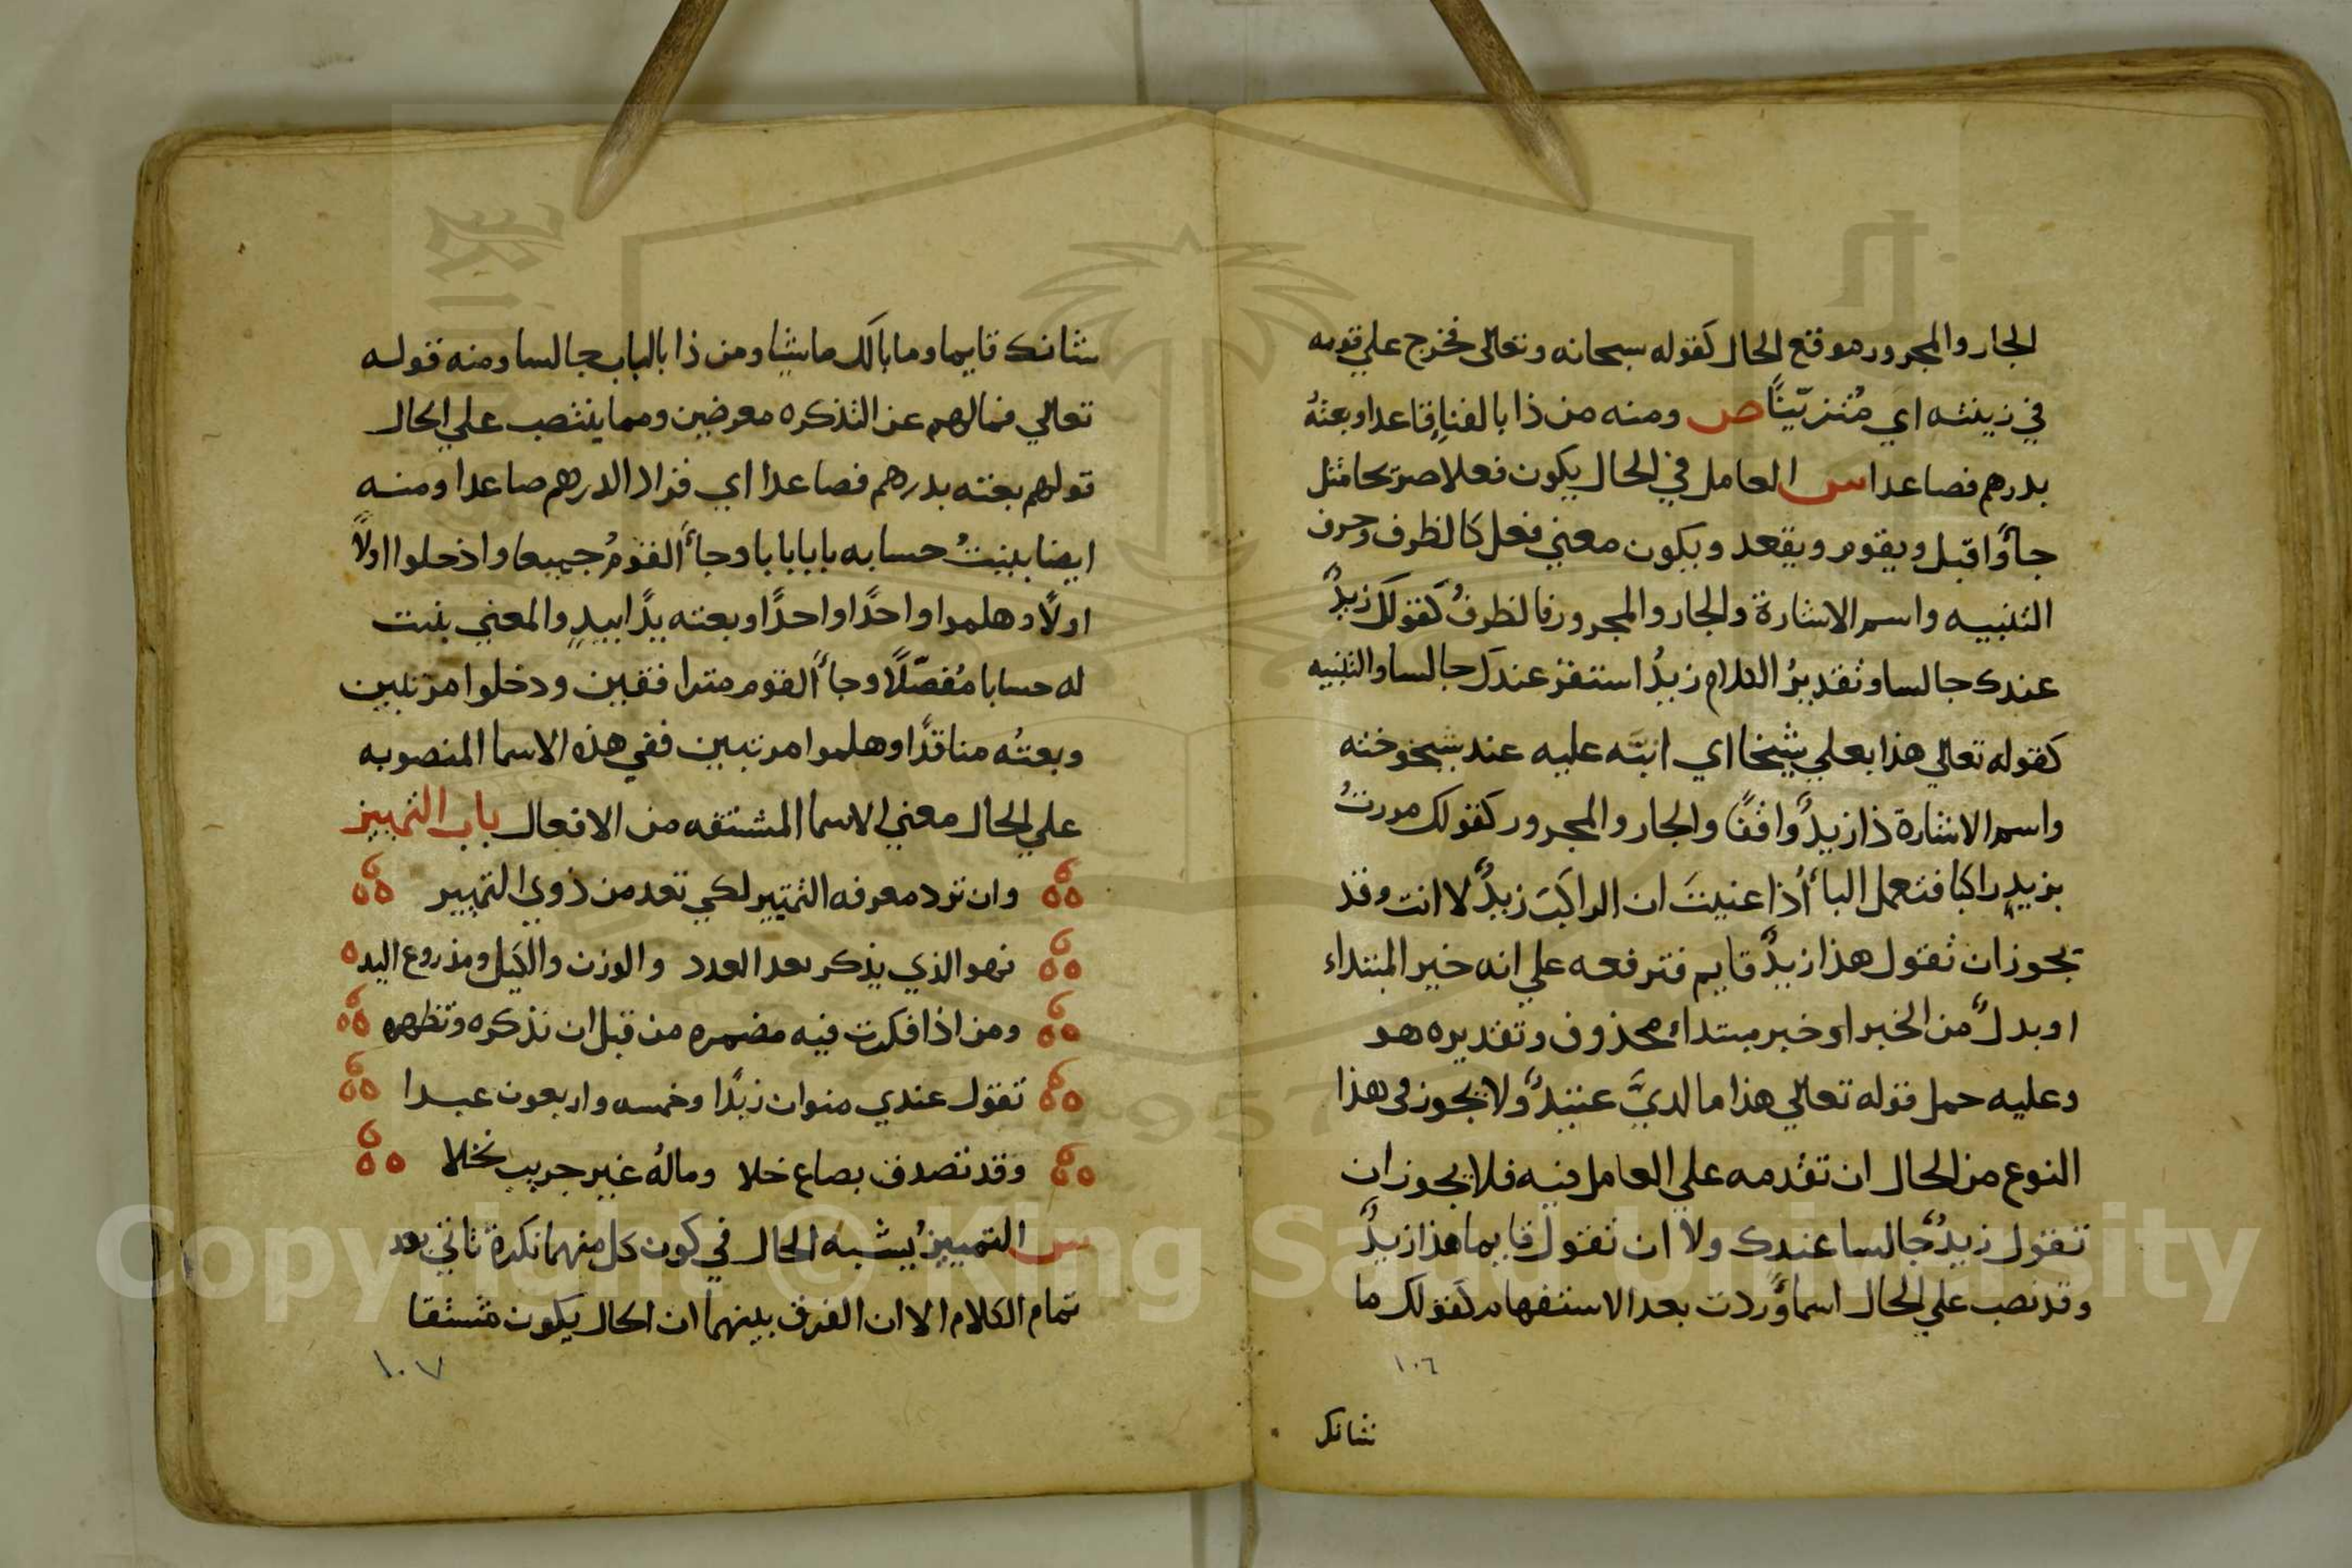 الجار والمجرور موقع الحال كقوله سبحانه وتعالى فخرج علي قومه
في زينته اي مُتزيّنًا ص ومنه من ذا بالفناِ قاعدا وبعتهُ
بدرهم فصاعدا س العامل في الحال يكون فعلا صريحا مثل
جاؤا قبل ويقوم ويقعد ويكون معني فعل كالظرف وحرف
التنبيه واسم الاشارة والجار والمجرور فالظرفُ كقولك زيدٌ
عندك جالسا وتقديرُ الكلام زيدُ استقر عندك جالسا والتنبيه
كقوله تعالي هذا بعلي شيخا اي انبّه عليه عند شيخوخته
واسم الاشارة ذا زيدٌ واقفًا والجار والمجرور كقولك مررتُ
بزيدٍ راكبا فتعمل الباأ اُذا عنيتَ ان الراكبَ زيدٌ لا انت وقد
يجوز ان تقول هذا زيدٌ قايم فترفعه علي انه خبر المبتداء
او بدلٌ من الخبر او خبر مبتداء محذوف وتقديره هو
وعليه حمل قوله تعالي هذا ما لديَّ عتيدٌ ولا يجوز في هذا
النوع من الحال ان تقدمه علي العامل فيه فلا يجوز ان
تقول زيدٌ جالسا عندك ولا ان تقول قايما هذا زيدٌ
وقد نصب علي الحال اسما وَردت بعد الاستفهام كقولك ما
١٠٦
شانك
شانك قايما وما بالك ماشيا ومن ذا بالباب جالسا ومنه قوله
تعالي فما لهم عن التذكره معرضين ومما ينتصب علي الحال
قولهم بعته بدرهم فصاعدا اي فزاد الدرهم صاعدا ومنه
ايضا بينتُ حسابه بابا بابا وجاأ القومُ جميعا وادخلوا اولًا
اولًا وهلموا واحدًا واحدًا وبعته يدًا بيدٍ والمعني بينت
له حسابا مُفصّلًا وجاأ القوم مترافقين ودخلوا مرتبين
وبعتُه مناقدًا وهلموا مرتبين ففي هذه الاسما المنصوبه
علي الحال معني الاسما المشتقه من الافعال باب التمييز
وان ترد معرفه التمييز لكي تعد من ذوي التمييز
فهو الذي يذكر بعد العدد والوزن والكيل ومذروع اليد
ومن اذا فكرت فيه مضمره من قبل ان تذكره وتظهره
تقول عندي منوان زبدًا وخمسه واربعون عبدا
وقد تصدق بصاع خلا وما لهُ غير جريب نخلا
س التمييزُ يشبه الحال في كون كل منهما نكرة تاتي بعد
تمام الكلام الا ان الفرق بينهما ان الحال يكون مشتقا
١٠٧
Copyright © King Saud University
1957